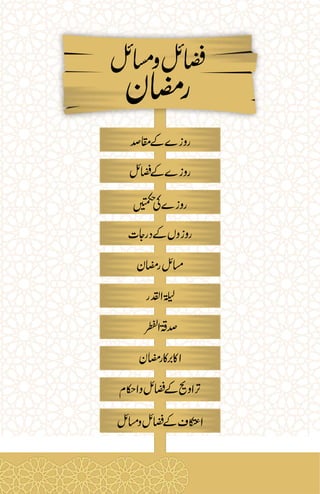 فضائل و مسائل
رمضان
روزے کے مقاصد
روزے کے فضائل
روزے کی حکمتیں
روزوں کے درجات
مسائل رمضان
لیلۃ القدر
صدقۃ الفطر
اکابر کا رمضان
تراویح کے فضائل و احکام
اعتکاف کے فضائل و مسائل